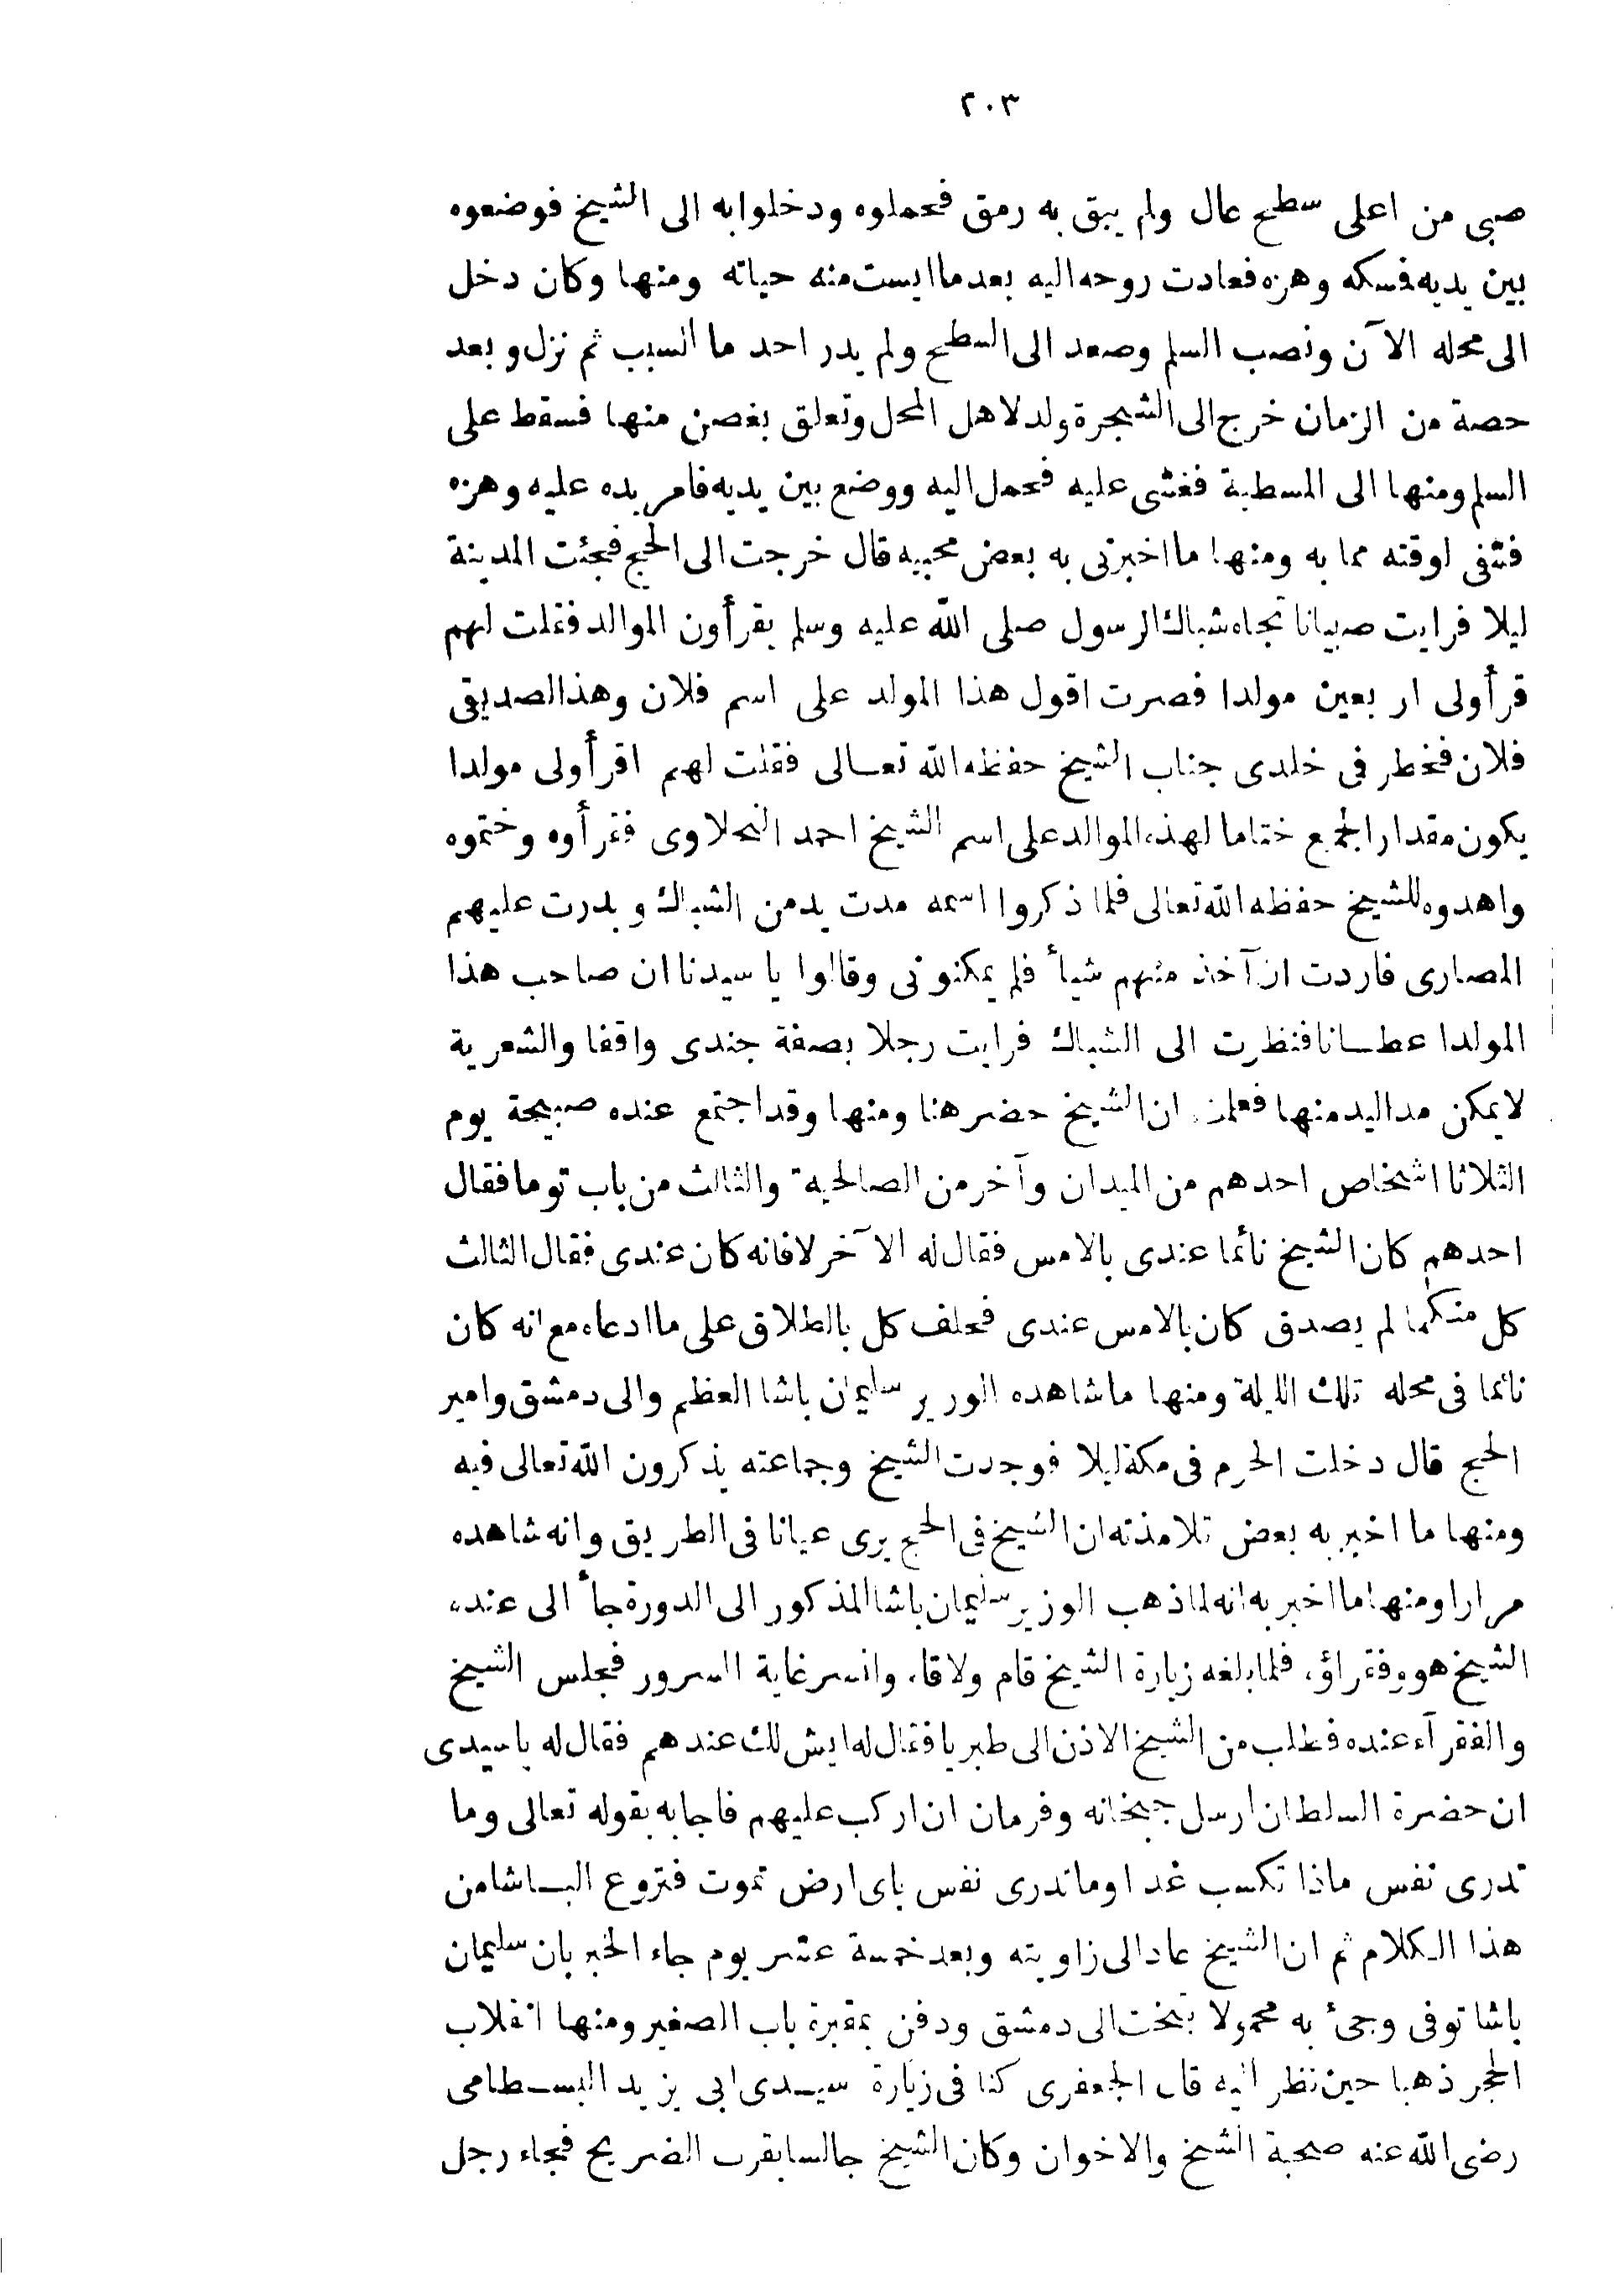 ٢٠٣
صبى من اعلى سطح عال ولم يبق به رمق فحملوه ودخلوابه الى الشيخ فوضعوه
بين يديه فمسكه وهزه فعادت روحه اليه بعد ما ايست منه حياته ومنها وكان دخل
الى محله الآن ونصب السلم وصعد الى السطح ولم يدر احد ما السبب ثم نزل وبعد
حصة من الزمان خرج الى الشجرة ولد لاهل المحل وتعلق بغصن منها فسقط على
السلم ومنها الى المسطبة فغشى عليه فحمل اليه ووضع بين يديه فامر يده عليه وهزه
فشفى لوقته مما به ومنها ما اخبرنى به بعض محبيه قال خرجت الى الحج فجئت المدينة
ليلا فرايت صبيانا تجاه شباك الرسول صلى الله عليه وسلم يقرأون الموالد فقلت لهم
قرأولى اربعين مولدا فصرت اقول هذا المولد على اسم فلان وهذا لصديقى
فلان فخطر فى خلدى جناب الشيخ حفظه الله تعالى فقلت لهم اقرأولى مولدا
يكون مقدار الجميع ختاما لهذه الموالد على اسم الشيخ احمد النحلاوى فقرأوه وختموه
واهدوه للشيخ حفظه الله تعالى فلما ذكروا اسمه مدت يد من الشباك وبدرت عليهم
المصارى فاردت ان آخذ منهم شيأ فلم يمكنونى وقالوا يا سيدنا ان صاحب هذا
المولد اعطانا فنظرت الى الشباك فرايت رجلا بصفة جندى واقفا والشعرية
لا يمكن مد اليد منها فعلمت ان الشيخ حضر هنا ومنها وقد اجتمع عنده صبيحة يوم
الثلاثا اشخاص احدهم من الميدان وآخر من الصالحية والثالث من باب توما فقال
احدهم كان الشيخ نائما عندى بالامس فقال له الآخر لا فانه كان عندى فقال الثالث
كل منكما لم يصدق كان بالامس عندى فحلف كل بالطلاق على ما ادعاه مع انه كان
نائما فى محله تلك الليلة ومنها ما شاهده الوزير سليمان باشا العظم والى دمشق وامير
الحج قال دخلت الحرم فى مكة ليلا فوجدت الشيخ وجماعته يذكرون الله تعالى فيه
ومنها ما اخبر به بعض تلامذته ان الشيخ فى الحج يرى عيانا فى الطريق وانه شاهده
مرارا ومنها ما اخبر به انه لما ذهب الوزير سليمان باشا المذكور الى الدورة جأ الى عنده
الشيخ هو وفقراؤه فلما بلغه زيارة الشيخ قام ولاقاه وانسر غاية السرور فجلس الشيخ
والفقرآء عنده فطلب من الشيخ الاذن الى طبريا فقال له ايش لك عندهم فقال له يا سيدى
ان حضرة السلطان ارسل جبخانه وفرمان ان اركب عليهم فاجابه بقوله تعالى وما
تدرى نفس ماذا تكسب غدا وما تدرى نفس باى ارض تموت فتروع الباشا من
هذا الكلام ثم ان الشيخ عاد الى زاويته وبعد خمسة عشر يوم جاء الخبر بان سليمان
باشا توفى وجئ به محمولا بتخت الى دمشق ودفن بمقبرة باب الصغير ومنها انقلاب
الحجر ذهبا حين نظر اليه قال الجعفرى كنا فى زيارة سيدى ابى يزيد البسطامى
رضى الله عنه صحبة الشيخ والاخوان وكان الشيخ جالسا بقرب الضريح فجاء رجل